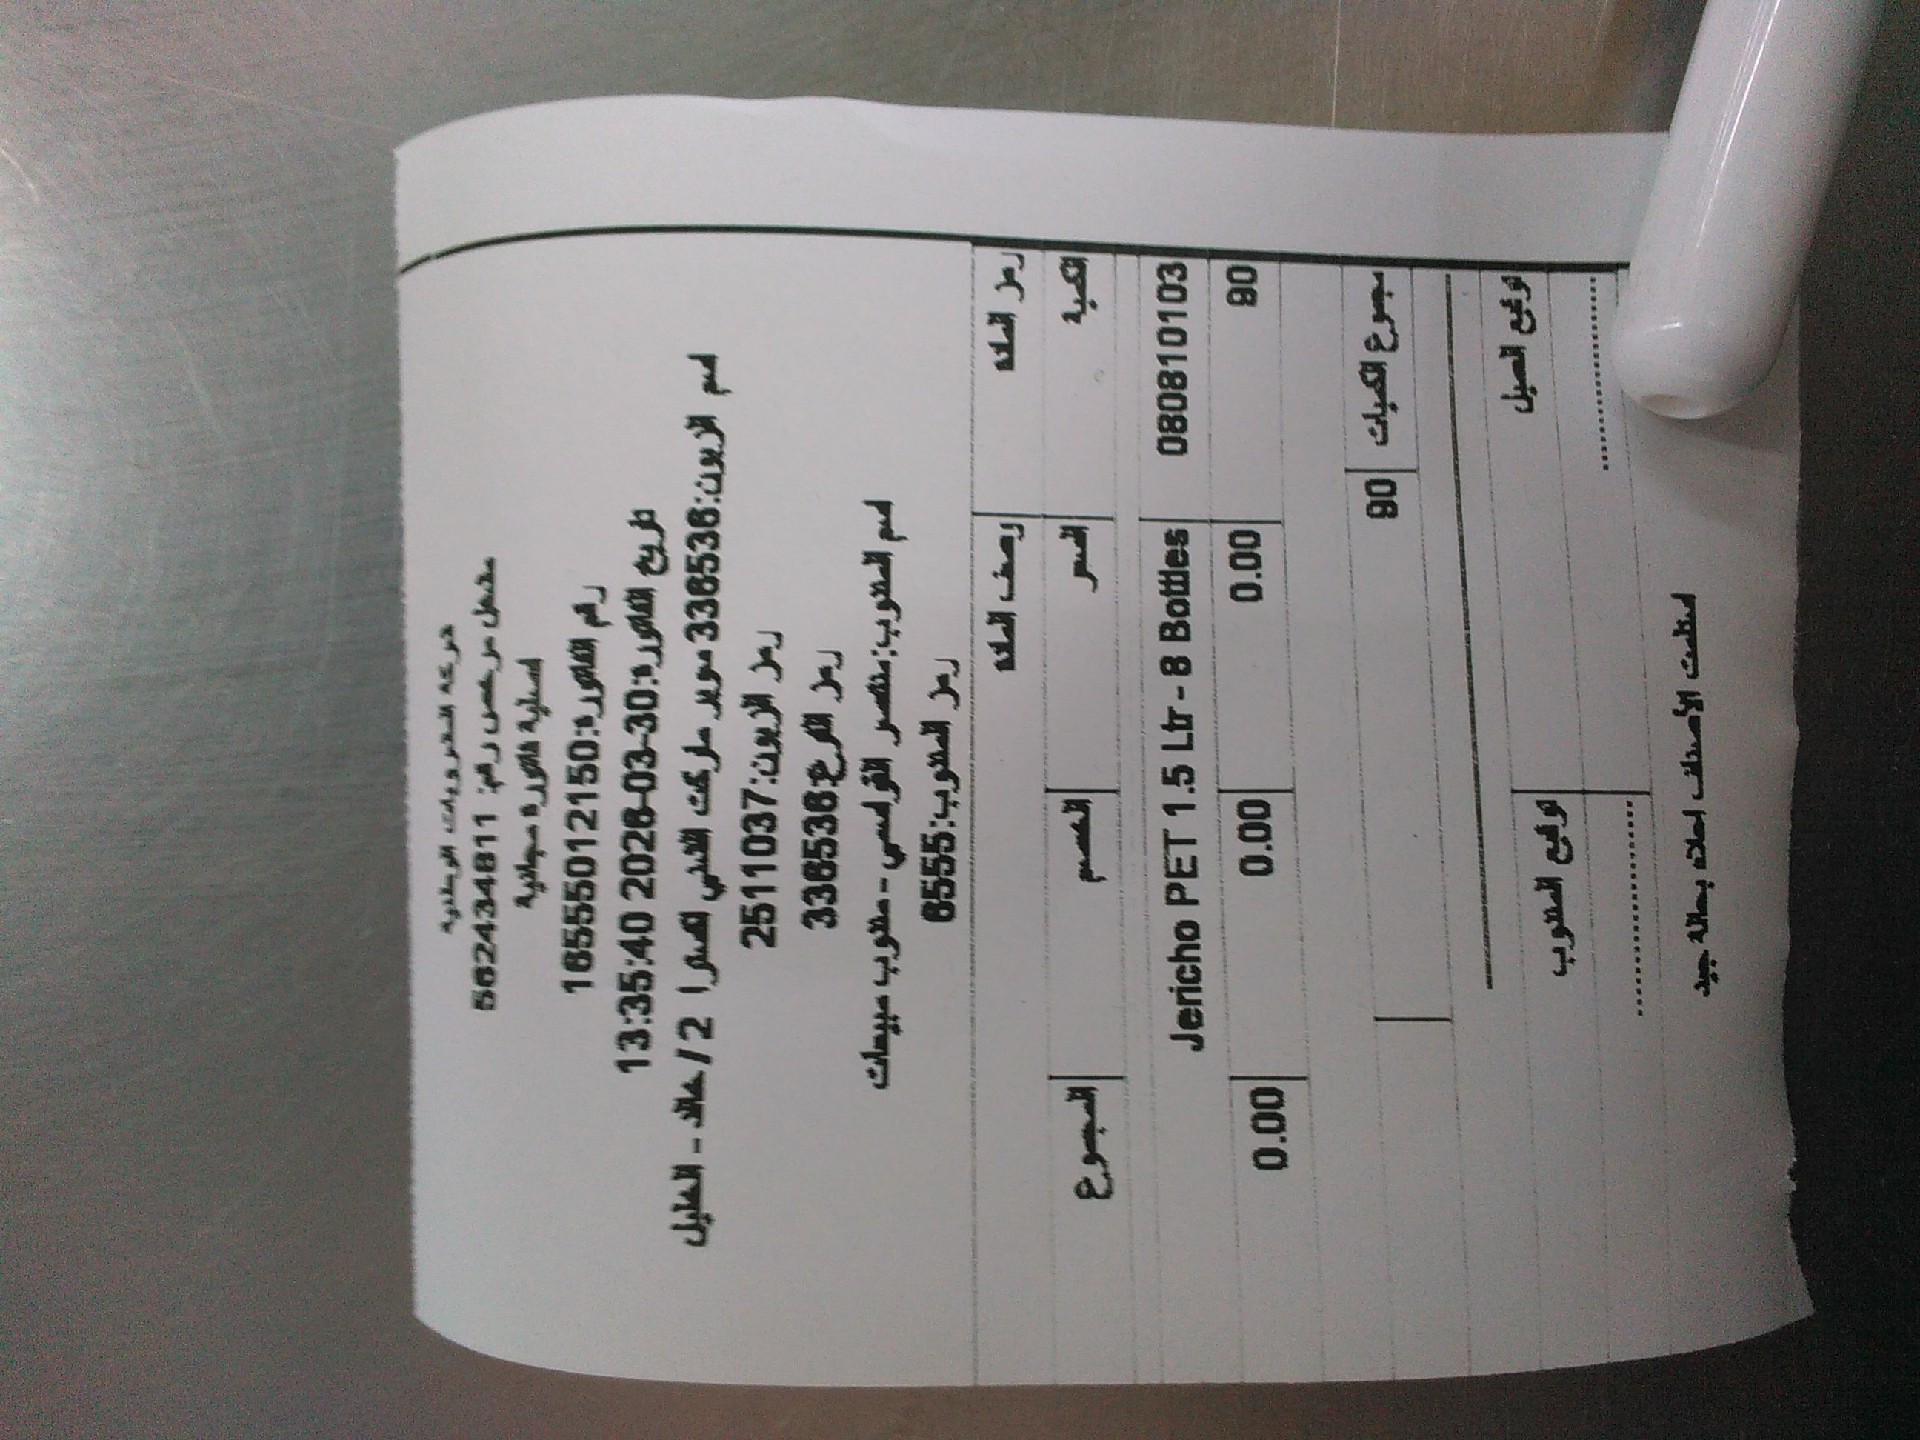 شركة المشروبات الوطنية
مشغل مرخص رقم: 562434811
اصلية فاتورة مجانية
رقم الفاتورة:16555012150
تاريخ الفاتورة:2026-03-30 13:35:40
اسم الزبون:3365536 سوبر ماركت القني الصرا 2 / خالد - الخليل
رمز الزبون:2511037
رمز الفرع:3365536
اسم المندوب:منتصر القواسمي - مندوب مبيعات
رمز المندوب:6555
رمز المادة وصف المادة
الكمية السعر الخصم المجموع
080810103 Jericho PET 1.5 Ltr - 8 Bottles
90 0.00 0.00 0.00
مجموع الكميات 90
توقيع العميل توقيع المندوب
استلمت الأصناف اعلاه بحالة جيد